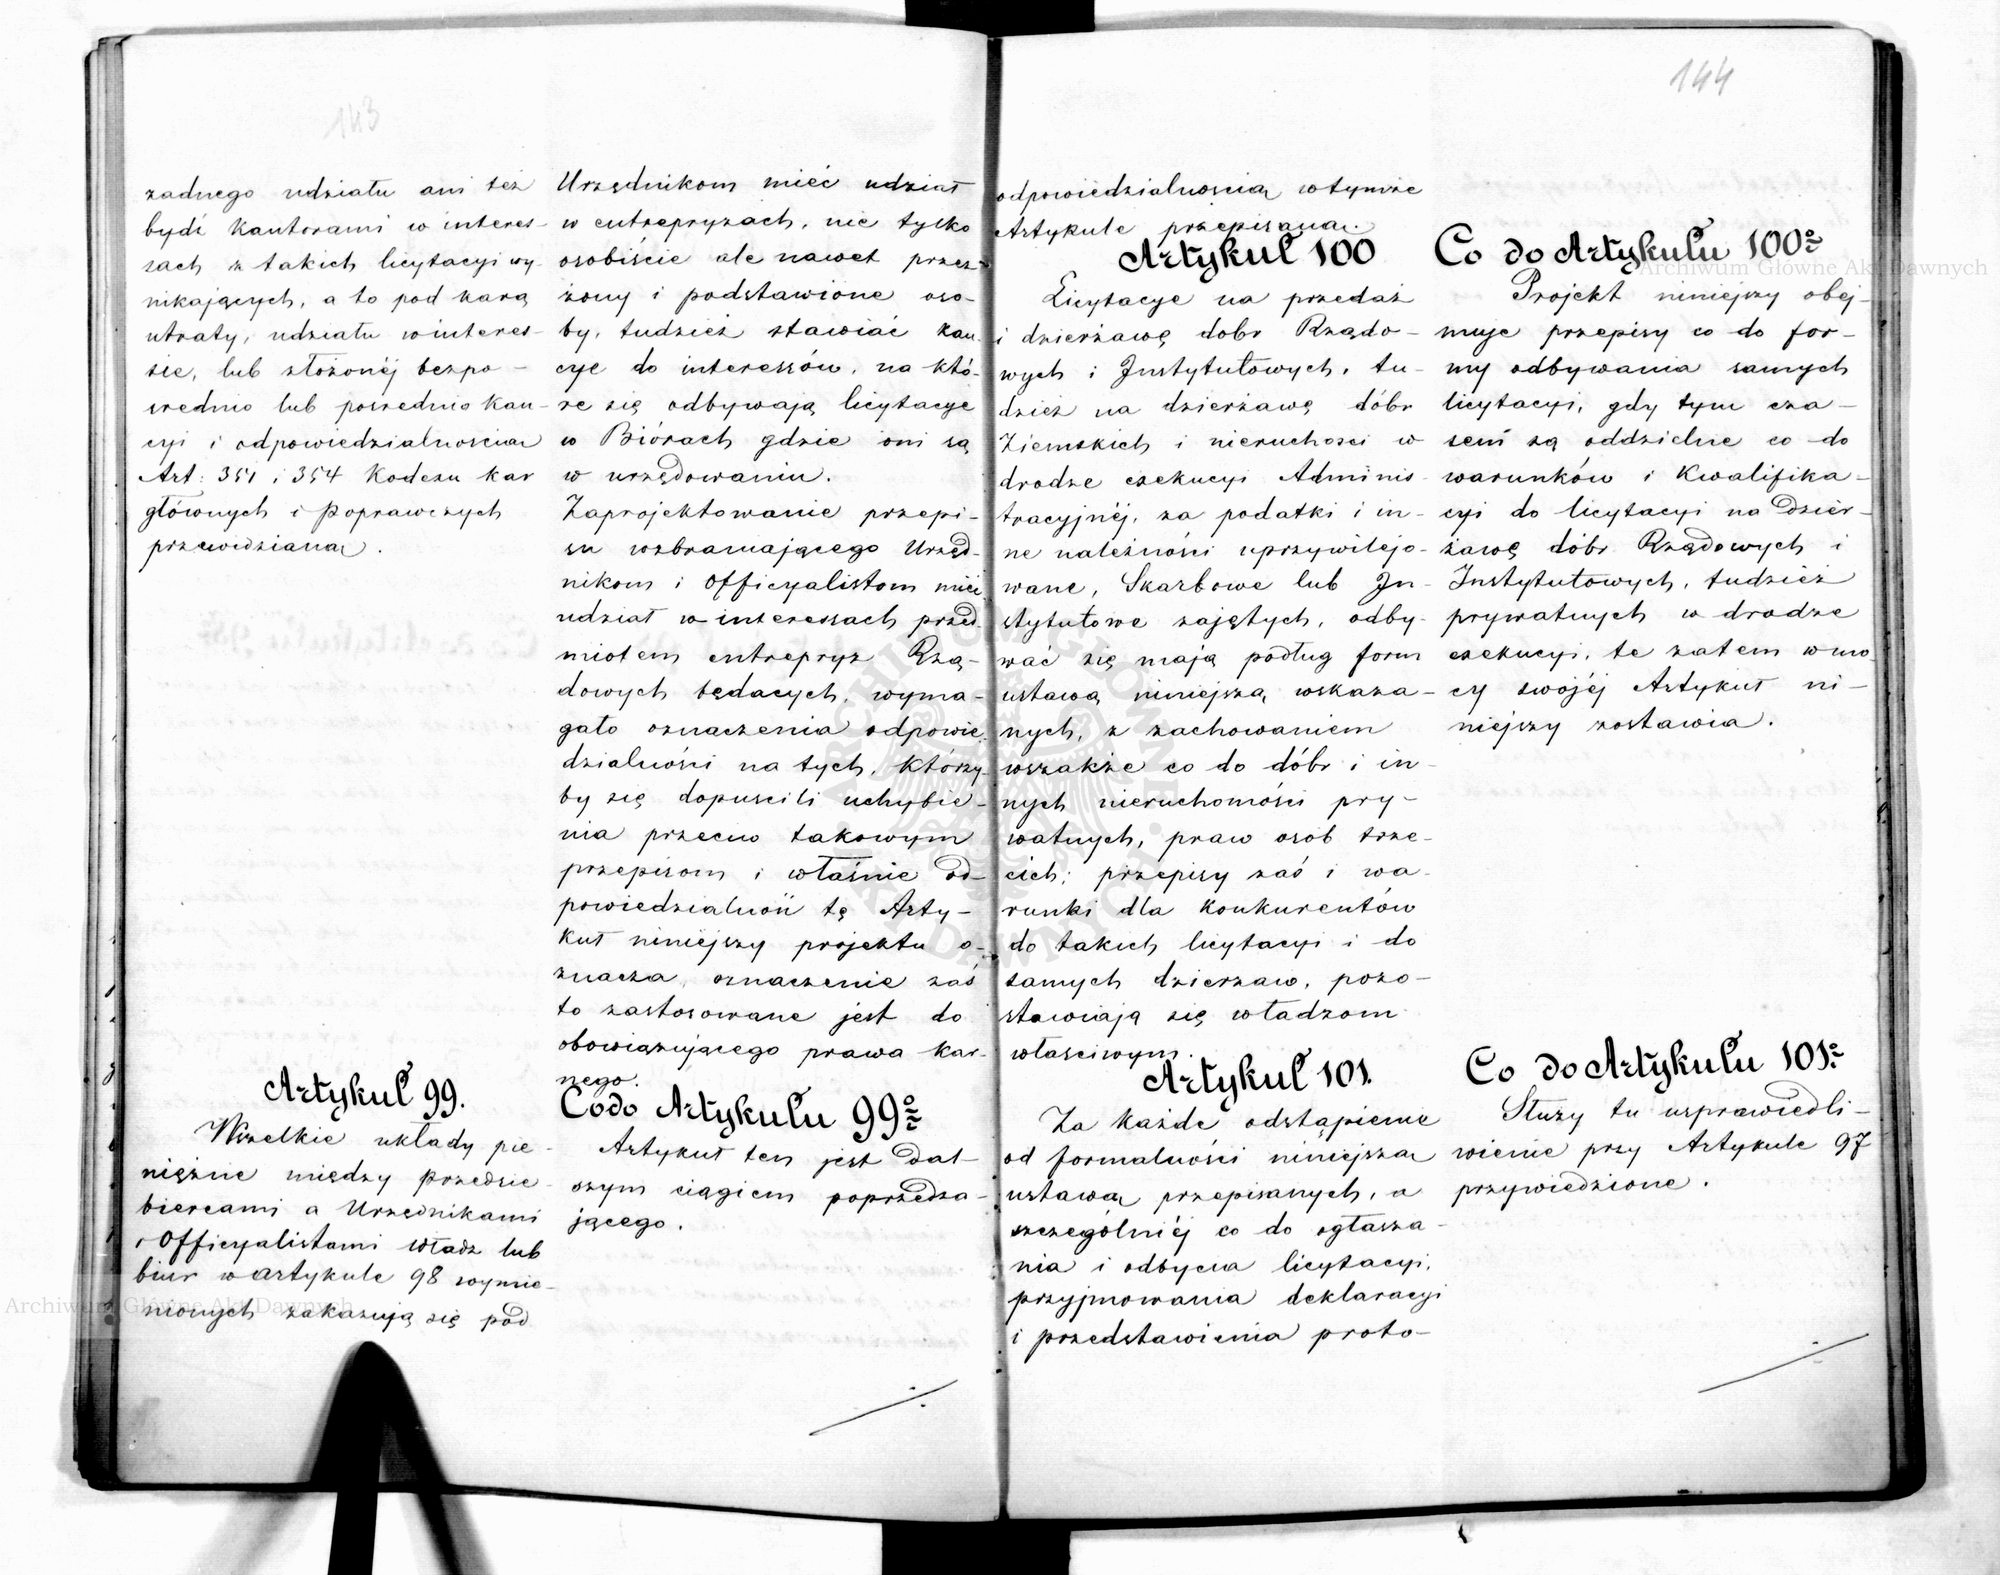 143
żadnego udziału ani też
bydź Kantorami w interes-
sach z takich licytacyi wy-
nikających, a to pod karą
utraty, udziału w interes-
sie, lub złożonéj bezpo-
srednio lub posrednio kau-
cyi i odpowiedzialnoscią
Art: 351 i 354 Kodexu kar
głównych i poprawczych
przewidzianą.
Artykuł 99.
Wszelkie układy pie-
niężne między przedsie-
biercami a Urzędnikami
i Officyalistami władz lub
biur w artykule 98 wymie-
nionych zakazują się pod
Urzędnikom mieć udział
w entrepryzach, nie tylko
osobiście ale nawet przez
żony i podstawione oso-
by, tudzież stawiać kau-
cye do interessów, na któ-
re się odbywają licytacye
w Biórach gdzie oni są
w urzędowaniu.
Zaprojektowanie przepi-
su wzbraniającego Urzęd-
nikom i Officyalistom mieć
udział w interessach przed-
miotem entrepryz Rzą-
dowych będacych, wyma-
gało oznaczenia odpowie-
dzialności na tych, którzy-
by się dopuscili uchybie-
nia przeciw takowym
przepisom i właśnie od-
powiedzialność tę Arty-
kuł niniejszy projektu o-
znacza, oznaczenie zaś
to zastosowane jest do
obowiązującego prawa kar-
nego.
Co do Artykułu 99º
Artykuł ten jest dal-
szym ciągiem poprzedza-
jącego.
144
odpowiedzialnoscią wtymże
Artykule przepisaną.
Artykuł 100
Licytacye na przedaż
i dzierżawę dobr Rządo-
wych i Instytutowych, tu-
dzież na dzierżawę dóbr
Ziemskich i nieruchosci w
drodze exekucyi Adminis-
tracyjnéj, za podatki i in-
ne należności uprzywilejo-
wane, Skarbowe lub In-
stytutowe zajętych, odby-
wać się mają podług form
ustawą niniejszą wskaza-
nych, z zachowaniem
wszakże co do dóbr i in-
nych nieruchomości pry-
watnych, praw osób trze-
cich; przepisy zaś i wa-
runki dla konkurentów
do takich licytacyi i do
samych dzierzaw, pozo-
stawiają się władzom
właściwym.
Artykuł 101.
Za każde odstąpienie
od formalności niniejszą
ustawą przepisanych, a
szczególniéj co do ogłasza-
nia i odbycia licytacyi,
przyjmowania deklaracyi
i przedstawienia proto-
Co do Artykułu 100º
Projekt niniejszy obej-
muje przepisy co do for-
my odbywania samych
licytacyi, gdy tym cza-
sem są oddzielne co do
warunków i kwalifika-
cyi do licytacyi na dzier-
żawę dóbr Rządowych i
Instytutowych, tudzież
prywatnych w drodze
exekucyi, te zatem w mo-
cy swojéj Artykuł ni-
niejszy zostawia.
Co do Artykułu 101º
Służy tu usprawiedli-
wienie przy Artykule 97
przywiedzione.
Archiwum Główne Akt Dawnych
Archiwum Główne Akt Dawnych